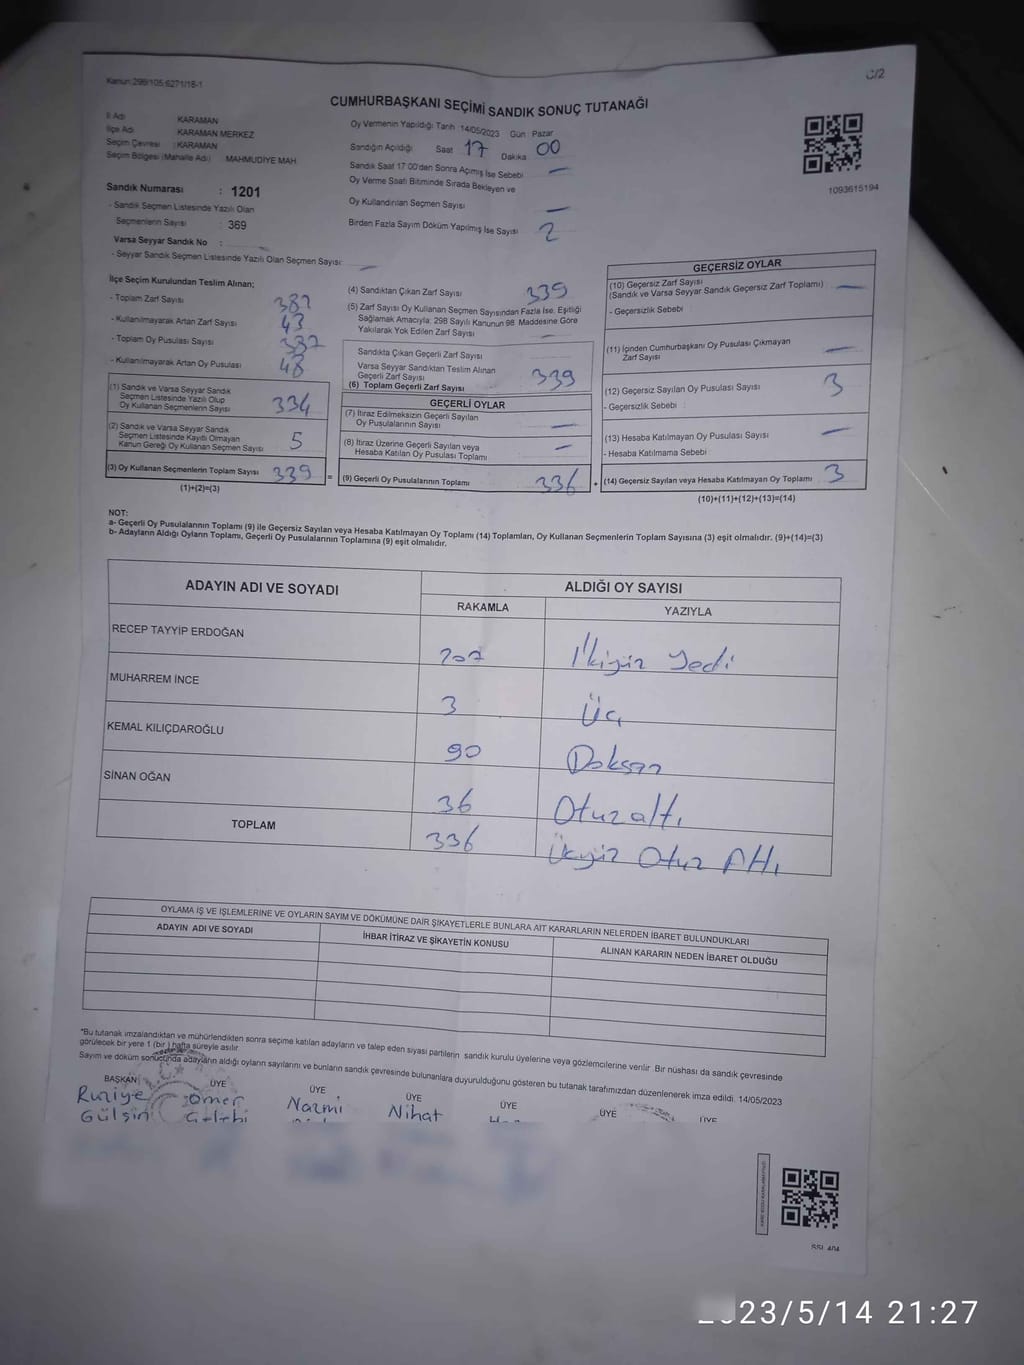 Kanun:298/105,6271/18-1
C/2
CUMHURBAŞKANI SEÇİMİ SANDIK SONUÇ TUTANAĞI
İl Adı KARAMAN
İlçe Adı KARAMAN MERKEZ
Seçim Çevresi : KARAMAN
Seçim Bölgesi (Mahalle Adı) MAHMUDİYE MAH
Sandık Numarası : 1201
- Sandık Seçmen Listesinde Yazılı Olan
Seçmenlerin Sayısı : 369
Varsa Seyyar Sandık No :
- Seyyar Sandık Seçmen Listesinde Yazılı Olan Seçmen Sayısı:
Oy Vermenin Yapıldığı Tarih :14/05/2023 Gün : Pazar
Sandığın Açıldığı Saat 17 Dakika 00
Sandık Saat 17 00'den Sonra Açımış İse Sebebi
Oy Verme Saati Bitiminde Sırada Bekleyen ve
Oy Kullandırılan Seçmen Sayısı
Birden Fazla Sayım Döküm Yapılmış İse Sayısı 2
1093615194
İlçe Seçim Kurulundan Teslim Alınan;
- Toplam Zarf Sayısı
- Kullanılmayarak Artan Zarf Sayısı 43
- Toplam Oy Pusulası Sayısı
- Kullanılmayarak Artan Oy Pusulası 48
(1) Sandık ve Varsa Seyyar Sandık
Seçmen Listesinde Yazılı Olup
Oy Kullanan Seçmenlerin Sayısı 334
(2) Sandık ve Varsa Seyyar Sandık
Seçmen Listesinde Kayıtlı Olmayan
Kanun Gereği Oy Kullanan Seçmen Sayısı 5
(3) Oy Kullanan Seçmenlerin Toplam Sayısı 339 =
(1)+(2)=(3)
(4) Sandıktan Çıkan Zarf Sayısı 339
(5) Zarf Sayısı Oy Kullanan Seçmen Sayısından Fazla İse, Eşitliği
Sağlamak Amacıyla; 298 Sayılı Kanunun 98. Maddesine Göre
Yakılarak Yok Edilen Zarf Sayısı
Sandıkta Çıkan Geçerli Zarf Sayısı
Varsa Seyyar Sandıktan Teslim Alınan
Geçerli Zarf Sayısı
(6) Toplam Geçerli Zarf Sayısı 339
GEÇERLİ OYLAR
(7) İtiraz Edilmeksizin Geçerli Sayılan
Oy Pusulalarının Sayısı
(8) İtiraz Üzerine Geçerli Sayılan veya
Hesaba Katılan Oy Pusulası Toplamı
(9) Geçerli Oy Pusulalarının Toplamı 336 +
GEÇERSİZ OYLAR
(10) Geçersiz Zarf Sayısı
(Sandık ve Varsa Seyyar Sandık Geçersiz Zarf Toplamı)
- Geçersizlik Sebebi
(11) İçinden Cumhurbaşkanı Oy Pusulası Çıkmayan
Zarf Sayısı
(12) Geçersiz Sayılan Oy Pusulası Sayısı 3
- Geçersizlik Sebebi
(13) Hesaba Katılmayan Oy Pusulası Sayısı
- Hesaba Katılmama Sebebi
(14) Geçersiz Sayılan veya Hesaba Katılmayan Oy Toplamı 3
(10)+(11)+(12)+(13)=(14)
NOT:
a- Geçerli Oy Pusulalarının Toplamı (9) ile Geçersiz Sayılan veya Hesaba Katılmayan Oy Toplamı (14) Toplamları, Oy Kullanan Seçmenlerin Toplam Sayısına (3) eşit olmalıdır. (9)+(14)=(3)
b- Adayların Aldığı Oyların Toplamı, Geçerli Oy Pusulalarının Toplamına (9) eşit olmalıdır.
ADAYIN ADI VE SOYADI
ALDIĞI OY SAYISI
RAKAMLA YAZIYLA
RECEP TAYYİP ERDOĞAN 207 İkiyüz Yedi
MUHARREM İNCE 3 Üç
KEMAL KILIÇDAROĞLU 90 Doksan
SİNAN OĞAN 36 Otuzaltı
TOPLAM 336 Üçyüz Otuz Altı
OYLAMA İŞ VE İŞLEMLERİNE VE OYLARIN SAYIM VE DÖKÜMÜNE DAİR ŞİKAYETLERLE BUNLARA AİT KARARLARIN NELERDEN İBARET BULUNDUKLARI
ADAYIN ADI VE SOYADI İHBAR İTİRAZ VE ŞİKAYETİN KONUSU ALINAN KARARIN NEDEN İBARET OLDUĞU
*Bu tutanak imzalandıktan ve mühürlendikten sonra seçime katılan adayların ve talep eden siyasi partilerin sandık kurulu üyelerine veya gözlemcilerine verilir. Bir nüshası da sandık çevresinde
görülecek bir yere 1 (bir ) hafta süreyle asılır.
Sayım ve döküm sonucunda adayların aldığı oyların sayılarını ve bunların sandık çevresinde bulunanlara duyurulduğunu gösteren bu tutanak tarafımızdan düzenlenerek imza edildi. 14/05/2023
BAŞKAN ÜYE ÜYE ÜYE ÜYE ÜYE ÜYE
Ruziye Ömer Nazmi Nihat
Gülsin Çelebi
23/5/14 21:27